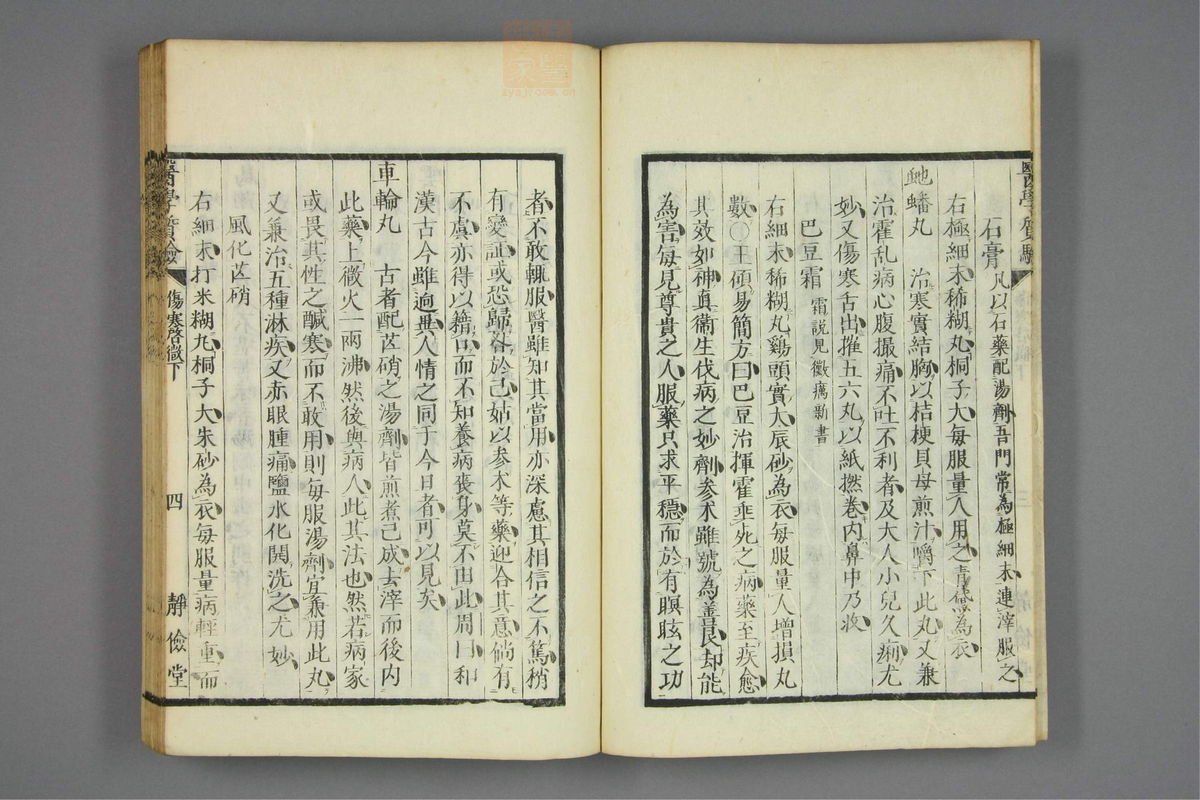 醫學質驗
石膏 凡以石藥配湯劑吾門常為極細末連滓服之
右極細末稀糊丸桐子大每服量人用之青黛為衣
虵蟠丸 治寒實結胸以桔梗貝母煎汁嚼下此丸又兼
治霍乱病心腹撮痛不吐不利者及大人小兒久痢尤
妙又傷寒舌出摧五六丸以紙撚卷內鼻中乃收
巴豆霜 霜説見黴癘新書
右細末稀糊丸鷄頭實大辰砂為衣每服量人增損丸
數○王碩易簡方曰巴豆治揮霍垂死之病藥至疾愈
其效如神真衞生伐病之妙劑參朮雖號為善良却能
為害每見尊貴之人服藥只求平穩而於有瞑眩之功
者不敢輒服醫雖知其當用亦深慮其相信之不篤稍
有變証或恐歸咎於己姑以參朮等藥迎合其意倘有
不虞亦得以籍口而不知養病喪身莫不由此周日和
漢古今雖逈異人情之同于今日者可以見矣
車輪丸 古者配芒硝之湯劑皆煎煮已成去滓而後内
此藥上微火一兩沸然後與病人此其法也然若病家
或畏其性之鹹寒而不敢用則每服湯劑宜兼用此丸
又兼治五種淋疾又赤眼腫痛鹽水化開洗之尤妙
風化芒硝
右細末打米糊丸桐子大朱砂為衣每服量病輕重而
醫學質驗 傷寒啓微下 四 靜儉堂